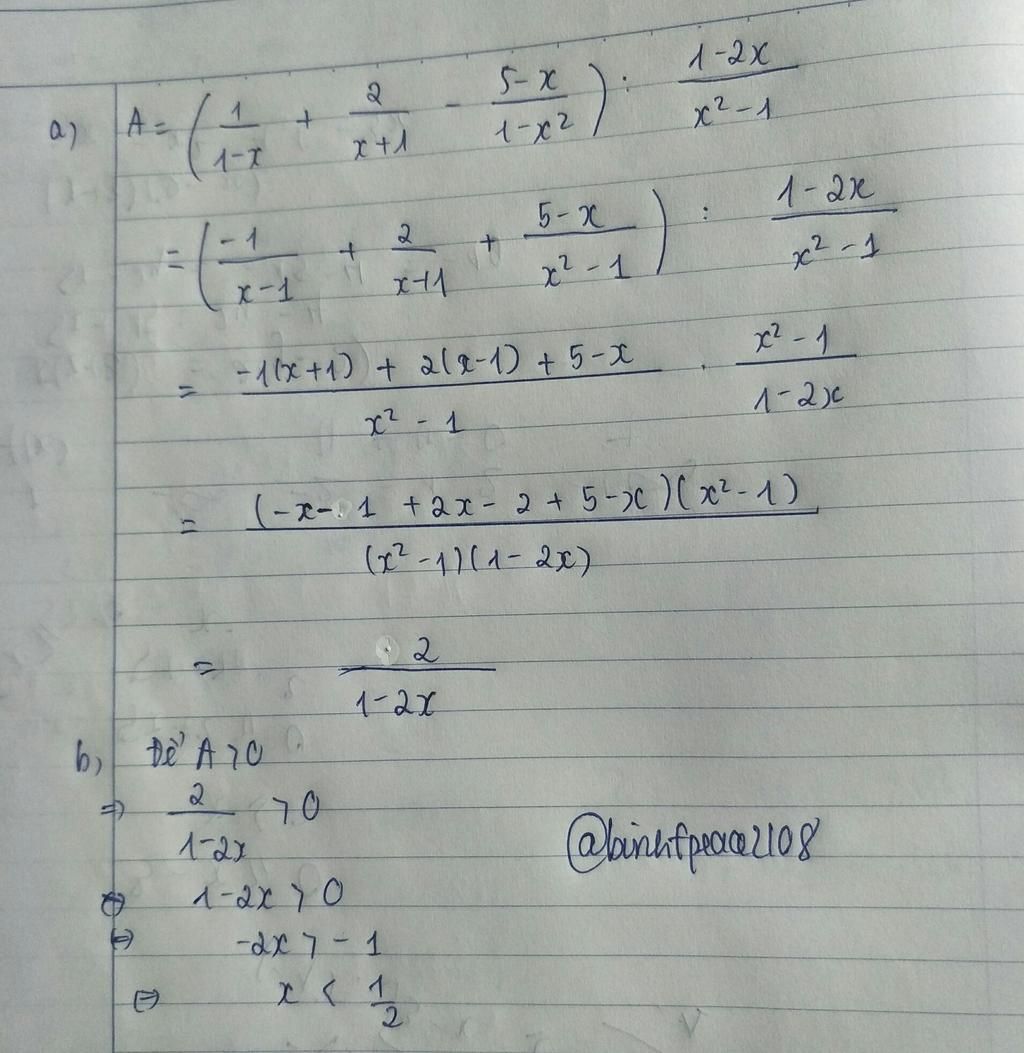 a) A = (1/(1-x) + 2/(x+1) - (5-x)/(1-x²)) : (1-2x)/(x²-1)
= (-1/(x-1) + 2/(x+1) + (5-x)/(x²-1)) : (1-2x)/(x²-1)
= (-1(x+1) + 2(x-1) + 5-x)/(x²-1) . (x²-1)/(1-2x)
= ((-x-1+2x-2+5-x)(x²-1))/((x²-1)(1-2x))
= 2/(1-2x)
b) Để A > 0
⇒ 2/(1-2x) > 0
⇔ 1-2x > 0
⇔ -2x > -1
⇔ x < 1/2